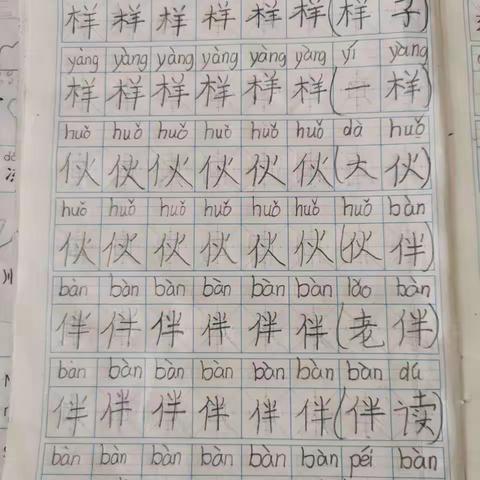 样 样 样 样 样 样 (样 子)
yàng yàng yàng yàng yàng yàng yí yàng
样 样 样 样 样 样 (一 样)
huǒ huǒ huǒ huǒ huǒ huǒ dà huǒ
伙 伙 伙 伙 伙 伙 (大 伙)
huǒ huǒ huǒ huǒ huǒ huǒ huǒ bàn
伙 伙 伙 伙 伙 伙 (伙 伴)
bàn bàn bàn bàn bàn bàn lǎo bàn
伴 伴 伴 伴 伴 伴 (老 伴)
bàn bàn bàn bàn bàn bàn bàn dú
伴 伴 伴 伴 伴 伴 (伴 读)
bàn bàn bàn bàn bàn bàn péi bàn